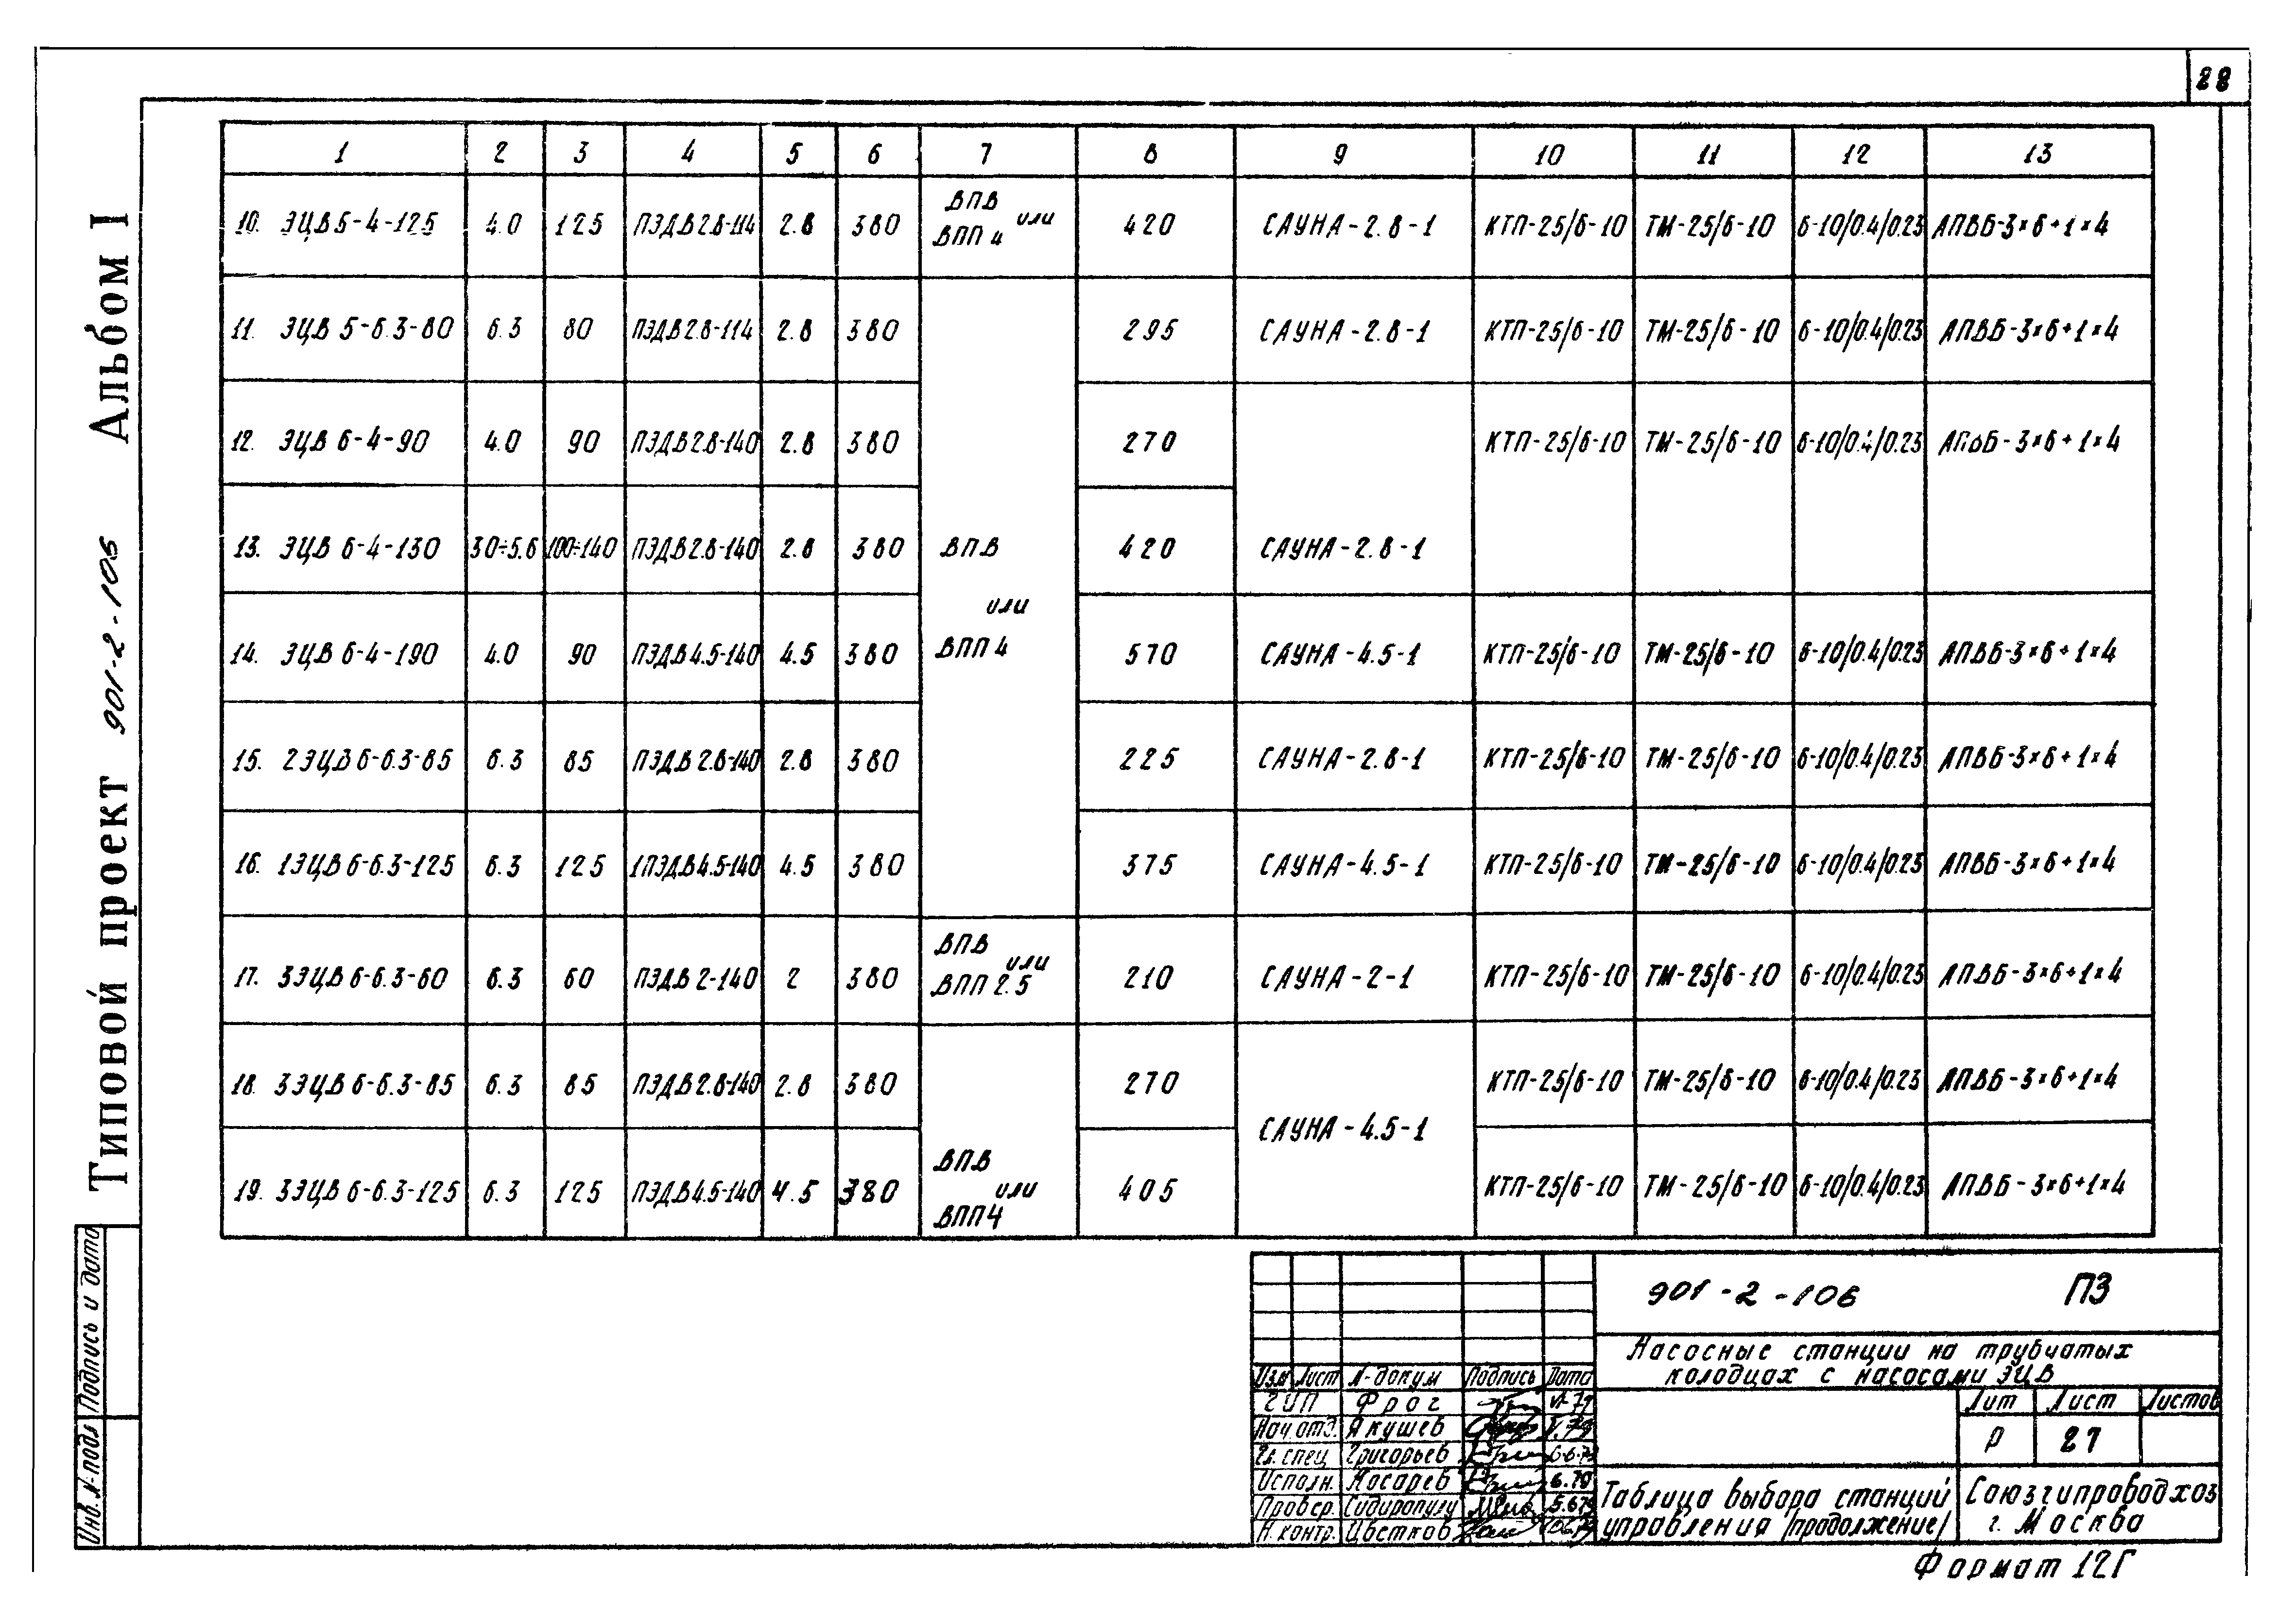 28
Альбом I
Типовой проект 901-2-106
Подпись и дата
Инв. № подл
1 2 3 4 5 6 7 8 9 10 11 12 13
10. ЭЦВ 5-4-125 4.0 125 ПЭДВ 2.8-114 2.8 380 ВПВ или ВПП 4 420 САУНА-2.8-1 КТП-25/6-10 ТМ-25/6-10 6-10/0.4/0.23 АПВБ-3×6+1×4
11. ЭЦВ 5-6.3-80 6.3 80 ПЭДВ 2.8-114 2.8 380 295 САУНА-2.8-1 КТП-25/6-10 ТМ-25/6-10 6-10/0.4/0.23 АПВБ-3×6+1×4
12. ЭЦВ 6-4-90 4.0 90 ПЭДВ 2.8-140 2.8 380 270 КТП-25/6-10 ТМ-25/6-10 6-10/0.4/0.23 АПВБ-3×6+1×4
13. ЭЦВ 6-4-130 3.0÷5.6 100÷140 ПЭДВ 2.8-140 2.8 380 ВПВ 420 САУНА-2.8-1
или
14. ЭЦВ 6-4-190 4.0 90 ПЭДВ 4.5-140 4.5 380 ВПП 4 570 САУНА-4.5-1 КТП-25/6-10 ТМ-25/6-10 6-10/0.4/0.23 АПВБ-3×6+1×4
15. 2ЭЦВ 6-6.3-85 6.3 85 ПЭДВ 2.8-140 2.8 380 225 САУНА-2.8-1 КТП-25/6-10 ТМ-25/6-10 6-10/0.4/0.23 АПВБ-3×6+1×4
16. 1ЭЦВ 6-6.3-125 6.3 125 1ПЭДВ 4.5-140 4.5 380 375 САУНА-4.5-1 КТП-25/6-10 ТМ-25/6-10 6-10/0.4/0.23 АПВБ-3×6+1×4
17. 3ЭЦВ 6-6.3-60 6.3 60 ПЭДВ 2-140 2 380 ВПВ или ВПП 2.5 210 САУНА-2-1 КТП-25/6-10 ТМ-25/6-10 6-10/0.4/0.23 АПВБ-3×6+1×4
18. 3ЭЦВ 6-6.3-85 6.3 85 ПЭДВ 2.8-140 2.8 380 270 КТП-25/6-10 ТМ-25/6-10 6-10/0.4/0.23 АПВБ-3×6+1×4
САУНА-4.5-1
19. 3ЭЦВ 6-6.3-125 6.3 125 ПЭДВ 4.5-140 4.5 380 ВПВ или ВПП 4 405 КТП-25/6-10 ТМ-25/6-10 6-10/0.4/0.23 АПВБ-3×6+1×4
901-2-106 ПЗ
Насосные станции на трубчатых
колодцах с насосами ЭЦВ
Изм Лист № докум Подпись Дата
ГИП Фрог
Нач. отд. Якушев
Гл. спец Григорьев
Исполн. Косарев
Провер.
Н. контр. Цветков
Лит Лист Листов
Р 27
Таблица выбора станций
управления /продолжение/
Союзгипроводхоз
г. Москва
Формат 12Г